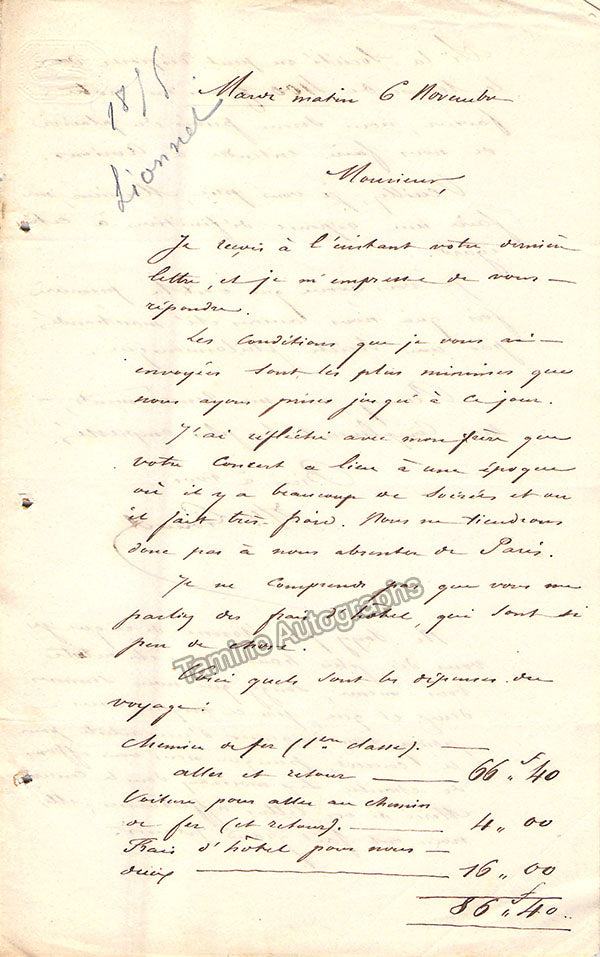 1855
Lionnet
Mardi matin 6 Novembre
Monsieur,
Je reçois à l'instant votre dernière
lettre, et je m'empresse de vous
répondre.
Les conditions que je vous ai
envoyées sont les plus minimes que
nous ayons prises jusqu'à ce jour.
J'ai réfléchi avec mon frère que
votre Concert a lieu à une époque
où il y a beaucoup de soirées et où
il fait très-froid. Nous ne tiendrons
donc pas à nous absenter de Paris.
Je ne comprends pas que vous me
parliez des frais d'hôtel, qui sont si
peu de chose.
Voici quels sont les dépenses du
voyage :
Chemin de fer (1ère classe). —
aller et retour — 66 f„ 40
Voiture pour aller au chemin
de fer (et retour). — 4„ 00
Frais d'hôtel pour nous —
deux — 16„ 00
86 f„ 40
Tamino Autographs